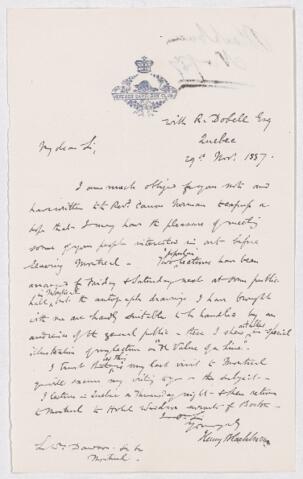 with R. Dobell Esq
Quebec
29th Novr. 1887.
My dear Sir,
I am much obliged for your note and
have written to the Revd. Canon Norman to express a
hope that I may have the pleasure of meeting
some of your people interested in art before
leaving Montreal. Two popular lectures have been
arranged for Friday & Saturday next at some public
hall, but the autograph drawings I have brought
with me are hardly suitable to be handled by an
audience of the general public - these I show as special
illustration of my lecture on "The Value of a line".
I trust that as this is my last visit to Montreal
you will excuse my writing again on the subject.
I lecture in Quebec on Thursday night & then return
to Montreal to Hotel Windsor en route for Boston.
I am Sir
Yours truly
Henry Blackburn
Sir Wm Dawson
Montreal.